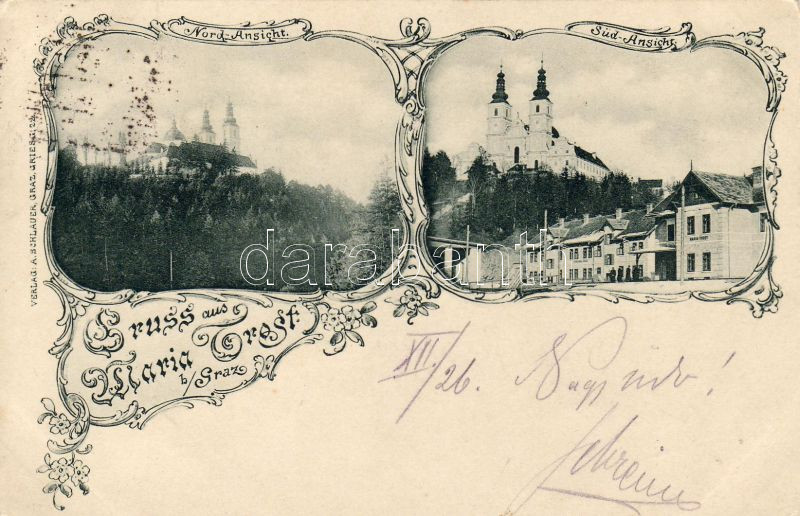 Nord-Ansicht.
Süd-Ansicht.
VERLAG: A. SCHLAUER, GRAZ, GRIESG. 29.
MARIA-TROST
darabanth
Gruss aus
Maria Trost
b/Graz
XII/26.